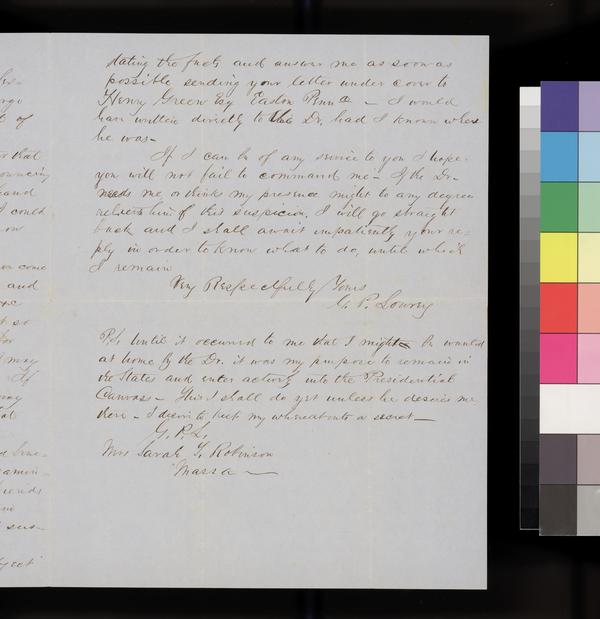 stating the facts and answer me as soon as
possible sending your letter under cover to
Henry Green Esq Easton Penna – I would
have written directly to the Dr. had I known where
he was –
If I can be of any service to you I hope
you will not fail to command me – If the Dr.
needs me or thinks my presence might to any degree
relieve him of this suspicion, I will go straight
back and I shall await impatiently your re-
ply in order to know what to do, until which
I remain
Very Respectfully Yours
G. P. Lowrey
P.S. Until it occurred to me that I might be wanted
at home by the Dr. it was my purpose to remain in
the States and enter actively into the Presidential
Canvass – This I shall do yet unless he desires me
there – I desire to keep my whereabouts a secret –
G. P. L.
Mrs Sarah T. Robinson
Massa –
of
that
hand
I could
on
come
and
so
for
may
If
friends
sus-